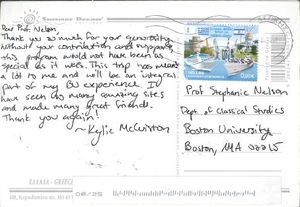 Summer Dream
Dear Prof. Nelson,
Thank you so much for your generosity.
Without your contribution and support,
this program would not have been as
special as it was. This trip has meant
a lot to me and will be an integral
part of my BU experience. I
have seen so many amazing sites
and made many great friends.
Thank you again!
~ Kylie McCuiston
Prof Stephanie Nelson
Dept. of Classical Studies
Boston University
Boston, MA 02215
ΕΛΛΑΔΑ - GREECE
08/25